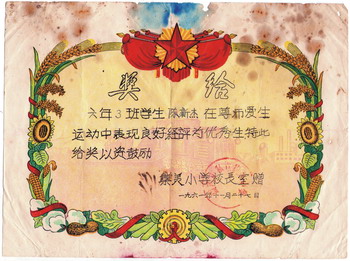 奖给
六年3班学生陈新杰在尊师爱生
运动中表现良好经评为优秀生特此
给奖以资鼓励
小学校长室赠
一九六一年十一月二十七日